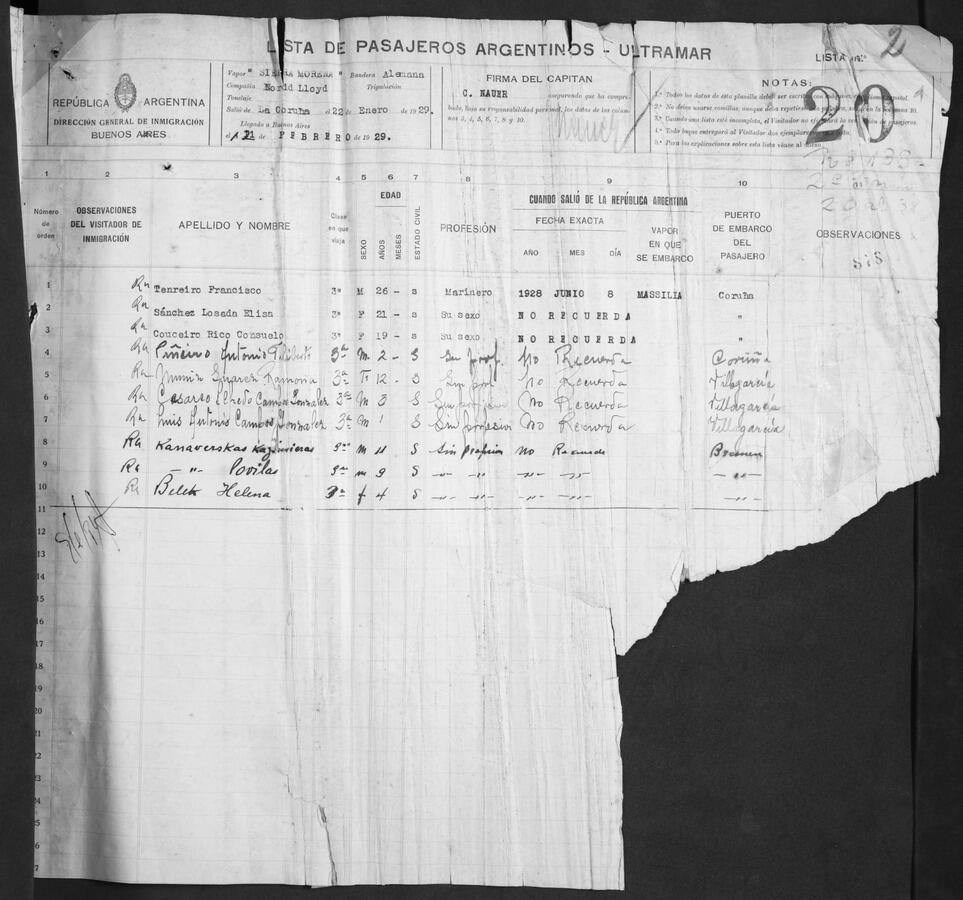 LISTA DE PASAJEROS ARGENTINOS - ULTRAMAR
LISTA Nº 2
REPÚBLICA ARGENTINA
DIRECCIÓN GENERAL DE INMIGRACIÓN
BUENOS AIRES
Vapor " SIERRA MORENA " Bandera Alemana
Compañía Nordd Lloyd Tripulación
Tonelaje
Salió de La Coruña el 22 de Enero de 1929.
Llegado a Buenos Aires
el 21 de FEBRERO de 1929.
FIRMA DEL CAPITAN
C. NAUER asegurando que ha compro-
bado, bajo su responsabilidad personal, los datos de las colum-
nas 3, 4, 5, 6, 7, 8 y 10.
NOTAS:
20
1.ª Todos los datos de esta planilla deben ser escritos con
2.ª No deben usarse comillas, aunque deba repetirse
3.ª Cuando una lista esté incompleta, el Visitador no de pasajeros.
4.ª Todo buque entregará al Visitador dos ejemplares
5.ª Para las explicaciones sobre esta lista véase al dorso.
1 2 3 4 5 6 7 8 9 10
Número de orden
OBSERVACIONES DEL VISITADOR DE INMIGRACIÓN
APELLIDO Y NOMBRE
Clase en que viaja
SEXO
EDAD
AÑOS
MESES
ESTADO CIVIL
PROFESIÓN
CUANDO SALIÓ DE LA REPÚBLICA ARGENTINA
FECHA EXACTA
AÑO MES DÍA
VAPOR EN QUE SE EMBARCO
PUERTO DE EMBARCO DEL PASAJERO
OBSERVACIONES
1 Ra Tenreiro Francisco 3ª M 26 - s Marinero 1928 JUNIO 8 MASSILIA Coruña
2 Ra Sánchez Losada Elisa 3ª F 21 - s Su sexo NO RECUERDA "
3 Ra Couceiro Rico Consuelo 3ª F 19 - s Su sexo NO RECUERDA "
4 Ra Piñeiro Antonio 3ª M 2 - S Sin prof. No Recuerda Coruña
5 Ra Suarez Ramona 3ª 12 - S Sin prof. No Recuerda Villagarcía
6 Ra Campos Gonzalez 3ª M 3 S Sin profesion No Recuerda Villagarcía
7 Ra Luis Antonio Campos Gonzalez 3ª M 1 S Sin profesion No Recuerda Villagarcía
8 Ra Kanaverskas Kazimieras 3ª m 11 S Sin profesion no Recuerda Bremen
9 Ra -"- Povilas 3ª m 9 S -"- -"- -"- -"- -"-
10 Ra Helena 3ª f 4 S -"- -"- -"- -"- -"-
11
12
13
14
15
16
17